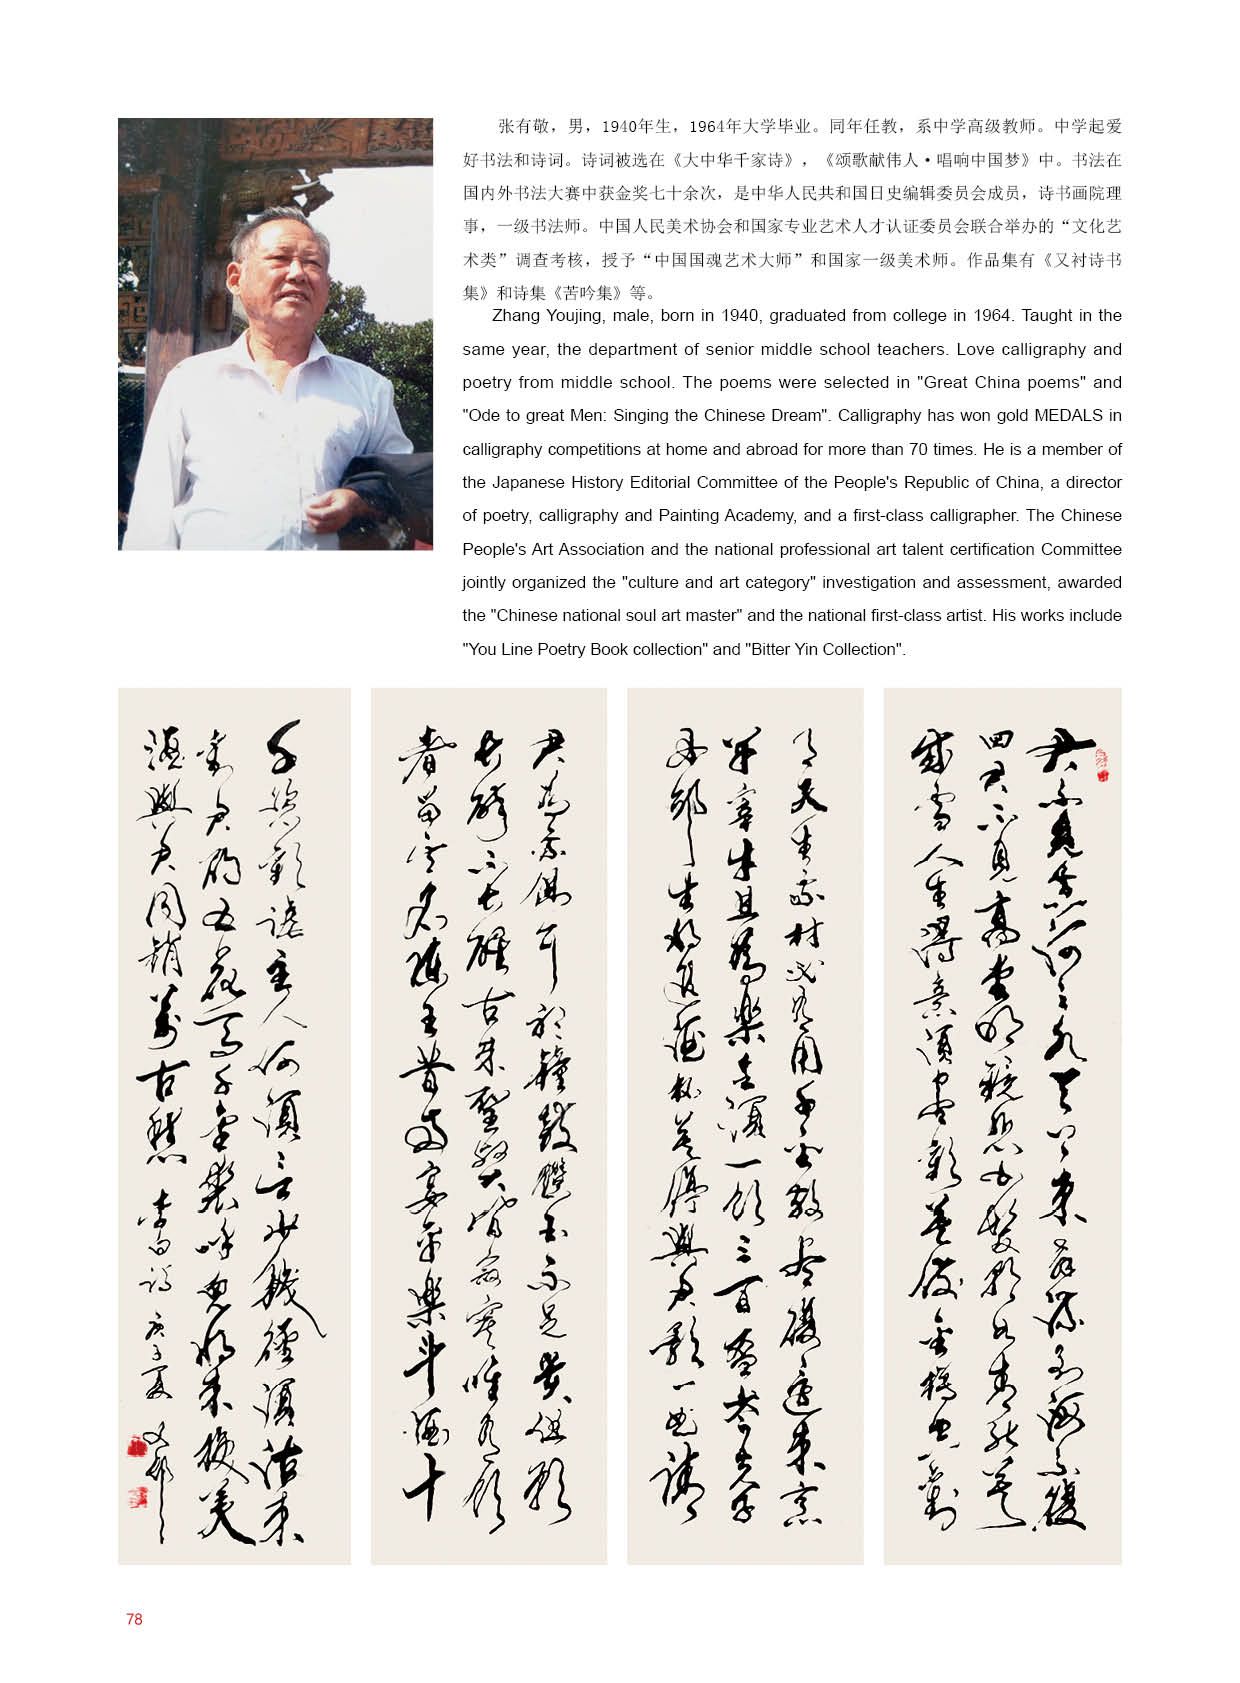 张有敬，男，1940年生，1964年大学毕业。同年任教，系中学高级教师。中学起爱
好书法和诗词。诗词被选在《大中华千家诗》，《颂歌献伟人·唱响中国梦》中。书法在
国内外书法大赛中获金奖七十余次，是中华人民共和国日史编辑委员会成员，诗书画院理
事，一级书法师。中国人民美术协会和国家专业艺术人才认证委员会联合举办的“文化艺
术类”调查考核，授予“中国国魂艺术大师”和国家一级美术师。作品集有《又衬诗书
集》和诗集《苦吟集》等。
Zhang Youjing, male, born in 1940, graduated from college in 1964. Taught in the
same year, the department of senior middle school teachers. Love calligraphy and
poetry from middle school. The poems were selected in "Great China poems" and
"Ode to great Men: Singing the Chinese Dream". Calligraphy has won gold MEDALS in
calligraphy competitions at home and abroad for more than 70 times. He is a member of
the Japanese History Editorial Committee of the People's Republic of China, a director
of poetry, calligraphy and Painting Academy, and a first-class calligrapher. The Chinese
People's Art Association and the national professional art talent certification Committee
jointly organized the "culture and art category" investigation and assessment, awarded
the "Chinese national soul art master" and the national first-class artist. His works include
"You Line Poetry Book collection" and "Bitter Yin Collection".
君不見黃河之水天上来奔流到海不復
回君不見高堂明鏡悲白髮朝如青絲暮
成雪人生得意須盡歡莫使金樽空對
月天生我材必有用千金散盡還復来烹
羊宰牛且為樂會須一飲三百杯岑夫子
丹邱生將進酒杯莫停與君歌一曲請
君為我傾耳聽鐘鼓饌玉不足貴但願
長醉不長醒古来聖賢皆寂寞唯有飲
者留其名陳王昔時宴平樂斗酒十
千恣歡謔主人何須言少錢徑須沽来
對君酌五花馬千金裘呼兒將来換美
酒與君同銷萬古愁 李白詩 庚子夏
78